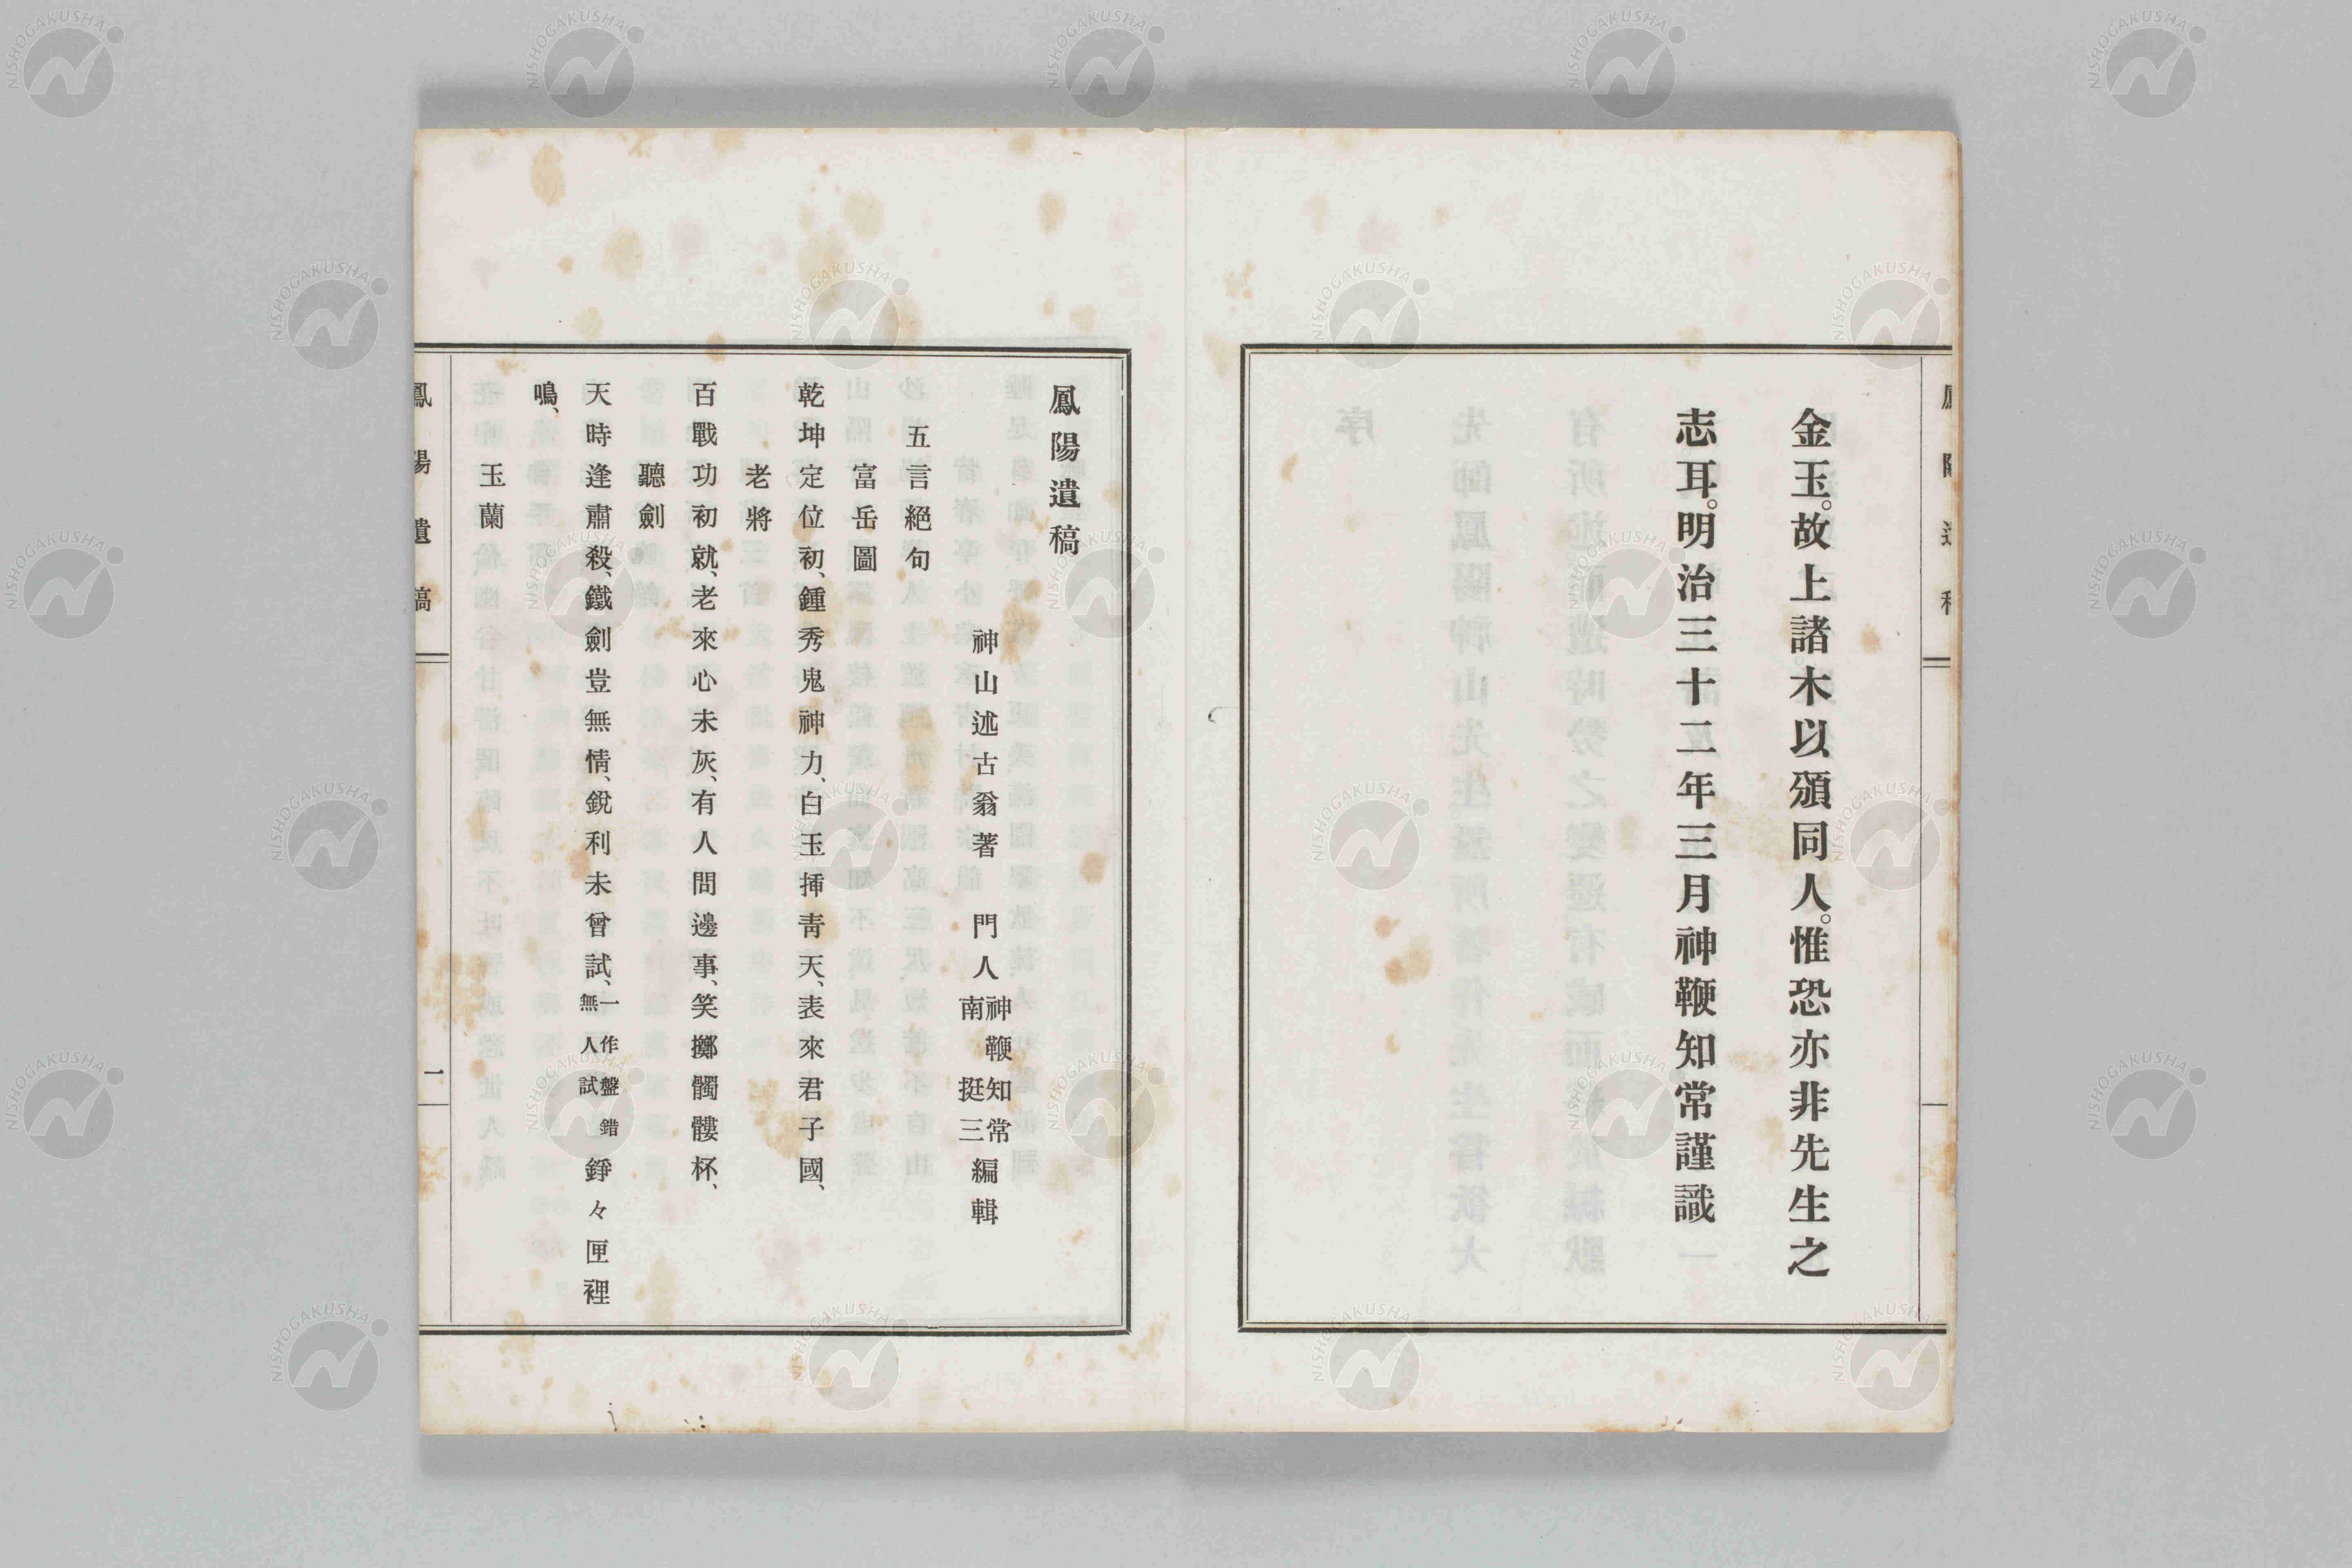 金玉。故上諸木以頒同人。惟恐亦非先生之
志耳。明治三十二年三月神鞭知常謹識
鳳陽遺稿
神山述古翁著 門人 神鞭知常 南挺三 編輯
五言絕句
富岳圖
乾坤定位初、鍾秀鬼神力、白玉揷靑天、表來君子國、
老將
百戰功初就、老來心未灰、有人問邊事、笑擲髑髏杯、
聽劍
天時逢肅殺、鐵劍豈無情、銳利未曾試、一作盤錯無人試 錚々匣裡
鳴、
玉蘭
鳳陽遺稿 一
NISHOGAKUSHA